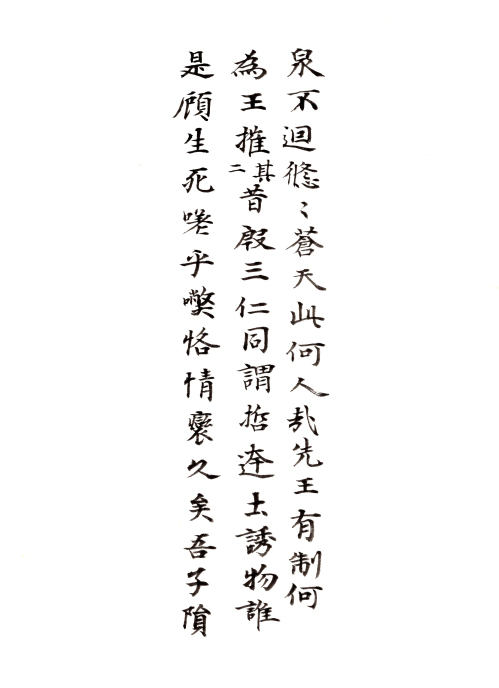 泉不迴悠〻蒼天此何人哉先王有制何
為王摧其二昔殷三仁同謂哲逩土誘物誰
是顧生死嗟乎獘恪情褱久矣吾子隕